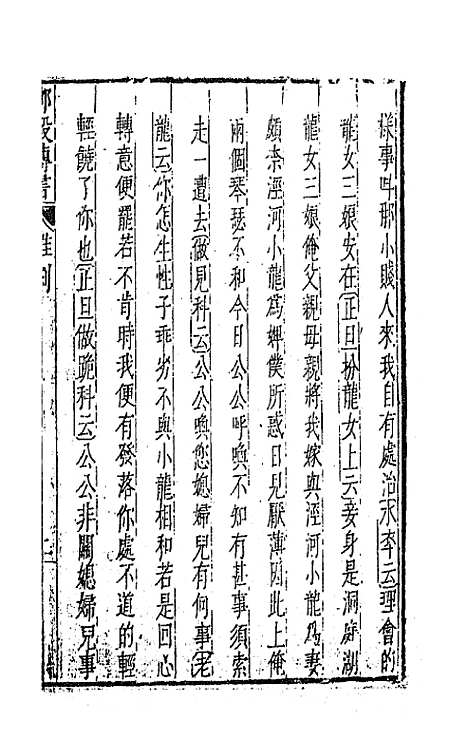 樣事叫那小賤人來我自有處治水卒云理會的
龍女三娘安在正旦扮龍女上云妾身是洞庭湖
龍女三娘俺父親母親將我嫁與涇河小龍爲妻
頗奈涇河小龍爲婢僕所惑日見厭薄因此上俺
兩個琴瑟不和今日公公呼喚不知有甚事須索
走一遭去做見科云公公喚您媳婦兒有何事老
龍云你怎生性子乖劣不與小龍相和若是回心
轉意便罷若不肯時我便有發落你處不道的輕
輕饒了你也正旦做跪科云公公非關媳婦兒事
柳毅傳書